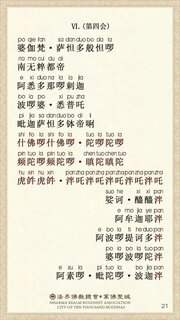 VI. (第四会)
po qie fan sa dan duo bo da la
婆伽梵·萨怛多般怛啰
na mo cui du di
南无粹都帝
e xi duo na la la jia
阿悉多那啰刺迦
bo la po xi pu zha
波啰婆·悉普吒
pi jia sa dan duo bo di li
毗迦萨怛多钵帝唎
shi fo la shi fo la tuo la tuo la
什佛啰什佛啰·陀啰陀啰
pin tuo la pin tuo la chen tuo chen tuo
频陀啰频陀啰·瞋陀瞋陀
hu xin hu xin pan zha pan zha pan zha
虎𤙖虎𤙖·泮吒泮吒泮吒泮吒
娑诃·醯醯泮
阿牟迦耶泮
阿波啰提诃多泮
婆啰波啰陀泮
阿素啰·毗陀啰·波迦泮
法界佛教總會·萬佛聖城
DHARMA REALM BUDDHIST ASSOCIATION
CITY OF TEN THOUSAND BUDDHAS
21